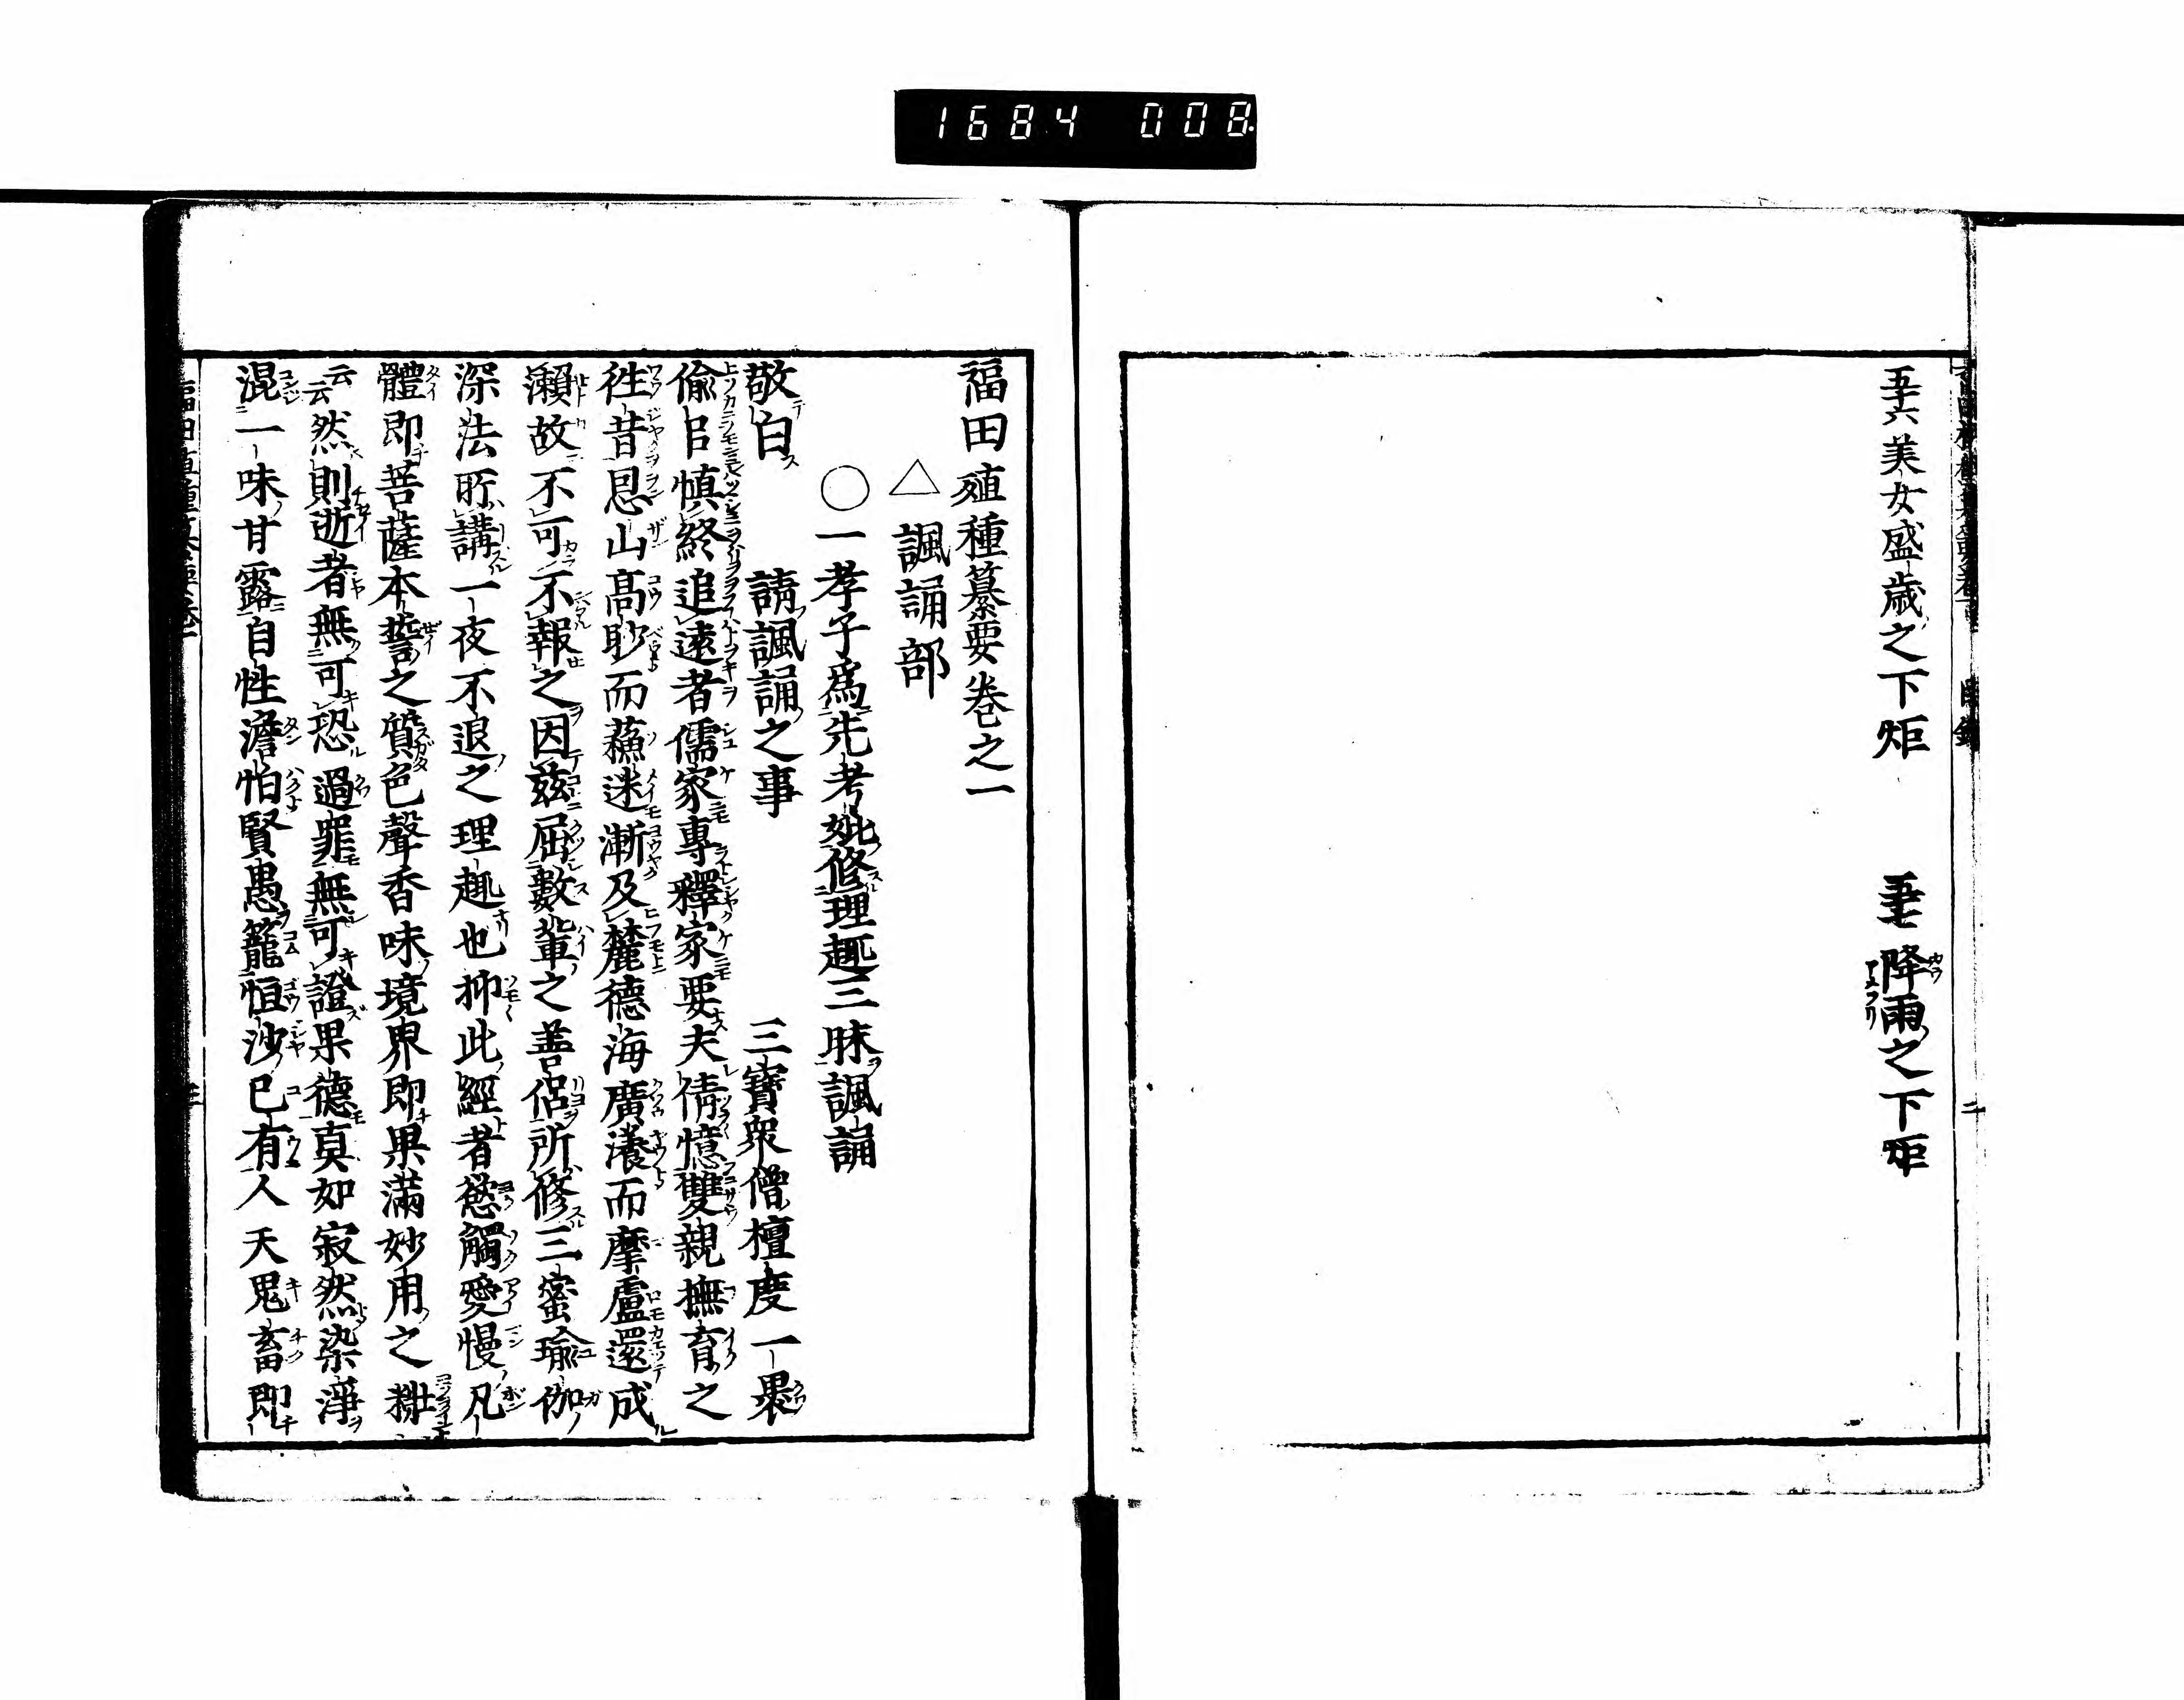 1684 008
五十六美女盛歳之下炬 五十七降雨之下炬
福田殖種纂要巻之一
△ 諷誦部
○一孝子爲先考妣修理趣三昧諷誦
敬白 請諷誦之事 三寶衆僧檀度一褁
偸㠯愼終追遠者儒家專釋家要夫倩憶雙親撫育之
徃昔恩山髙眇而蘓迷漸及麓德海廣瀁而摩盧還成
瀨故不可不報之因茲屈數輩之善侶所修三蜜瑜伽
深法所講一夜不退之理趣也抑此經者慾觸愛慢凡
體即菩薩本誓之質色聲香味境界即果滿妙用之
云云然則逝者無可恐過罪無可證果德真如寂然染淨
混一味甘露自性澹怕賢愚籠恒沙已有人天鬼畜即